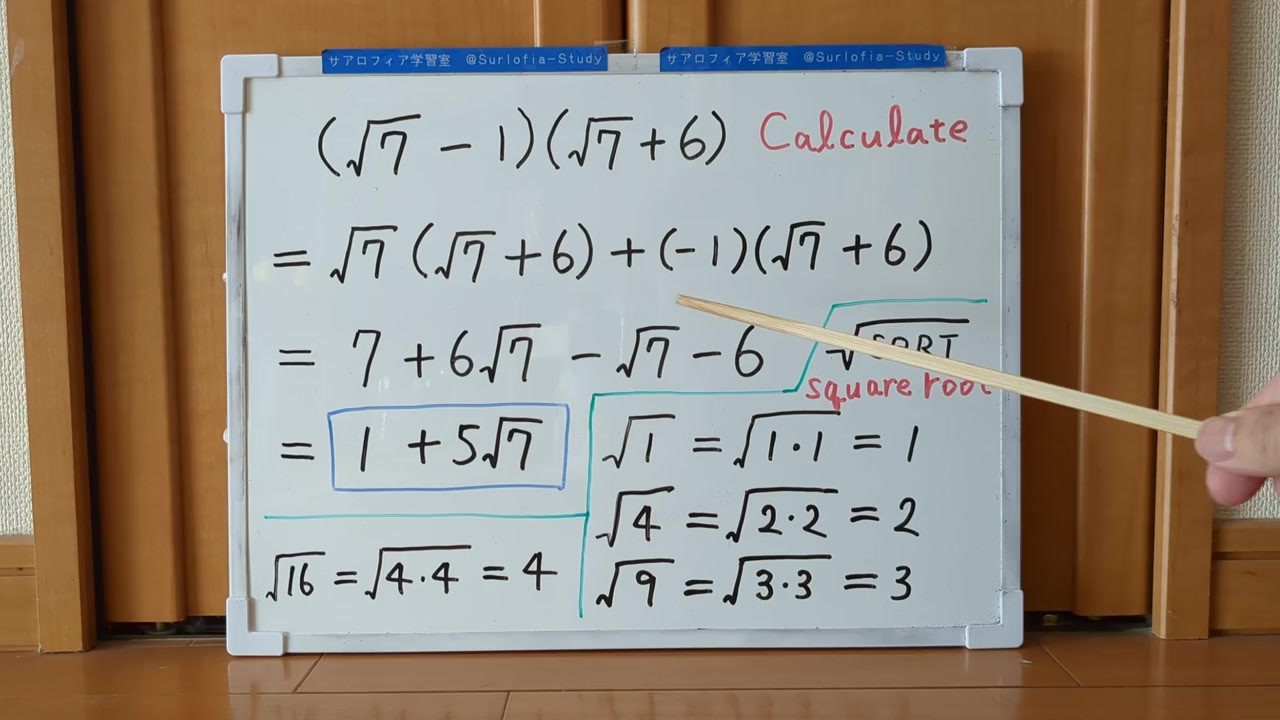 サアロフィア学習室 @Surlofia-Study サアロフィア学習室 @Surlofia-Study
(√7 - 1)(√7 + 6) Calculate
= √7 (√7 + 6) + (-1)(√7 + 6)
= 7 + 6√7 - √7 - 6
= 1 + 5√7
√16 = √4·4 = 4
square root
√1 = √1·1 = 1
√4 = √2·2 = 2
√9 = √3·3 = 3